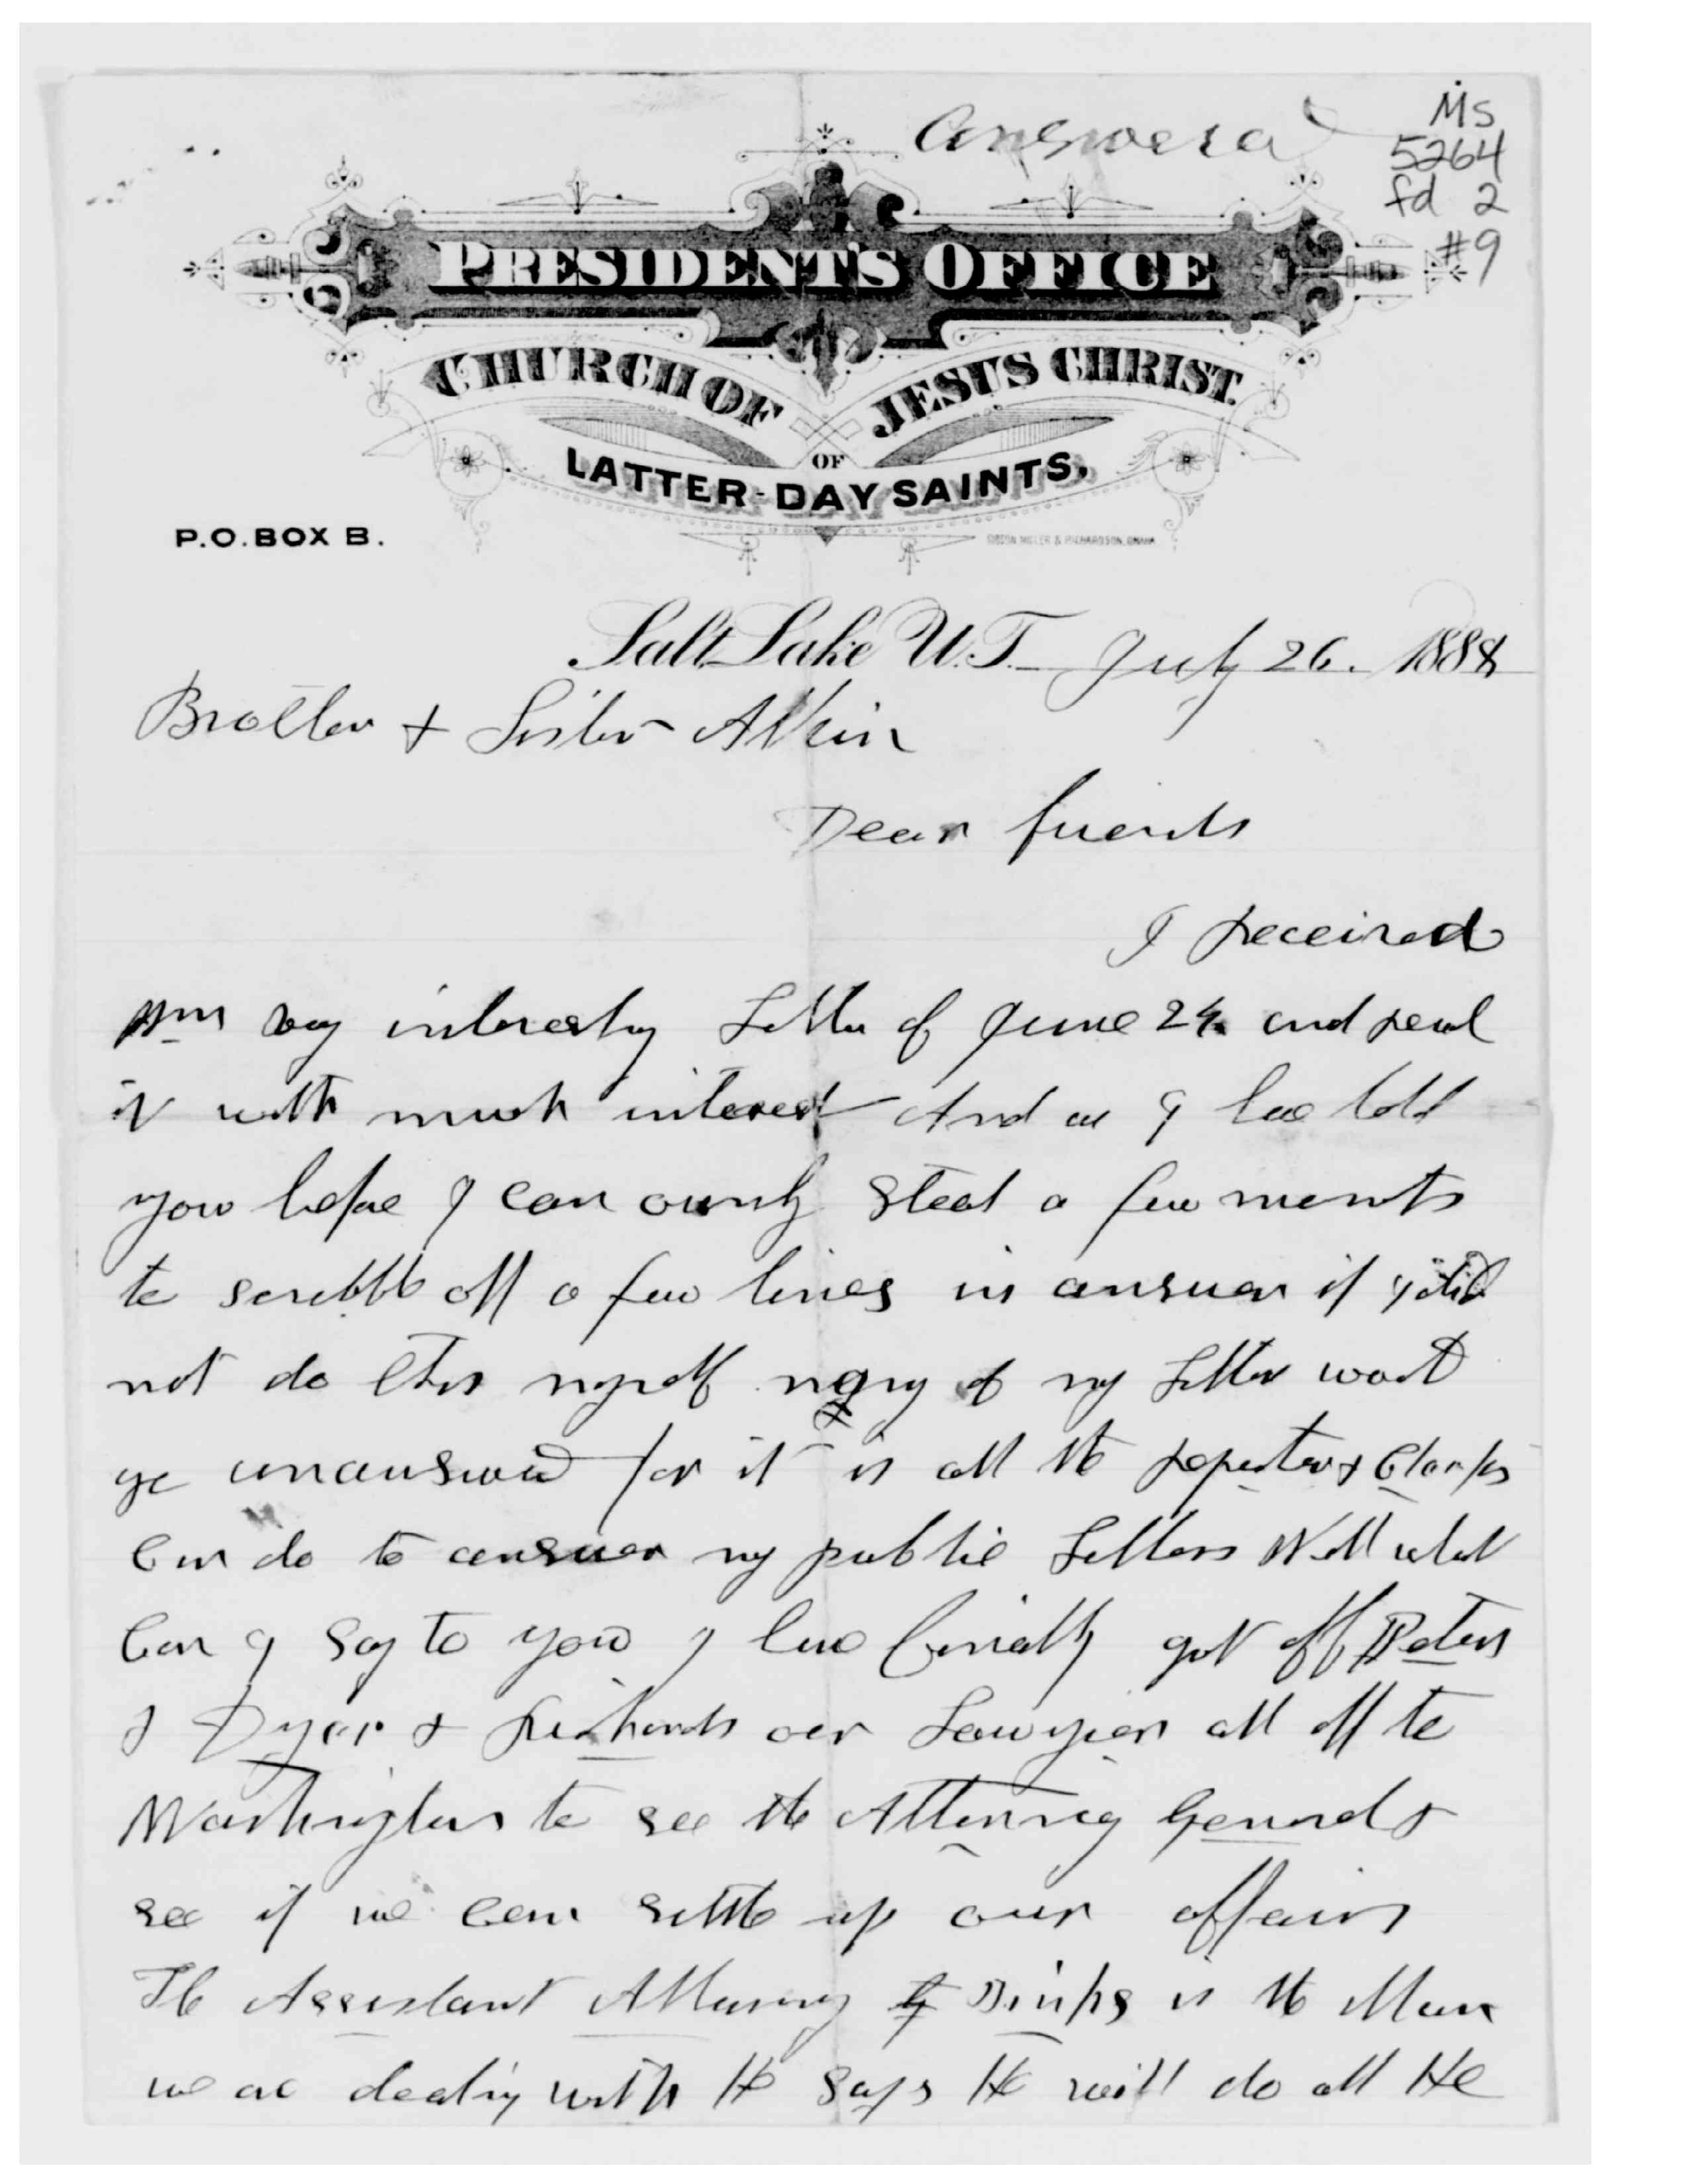 Answered
Ms
5264
fd 2
#9
PRESIDENT'S OFFICE
CHURCH OF JESUS CHRIST
OF
LATTER-DAY SAINTS.
P.O. BOX B.
Salt Lake U.T. July 26. 1888
Brother & Sister Atkin
Dear friends
I received
your very interesting Letter of June 24 and read
it with much interest And as I have told
you before I can ownly steal a few moments
to scribble off a few lines in answer if I did
not do this myself many of my Letters would
go unanswered for it is all the reporters & Clarks
Can do to answer my public Letters Well what
Can I say to you I have finally got off Peters
& Dyer & Richards our Lawyiers all off to
Washington to see the Attorney General &
see if we can settle up our affairs
The Assistant Attorney is the Man
we are dealing with He says He will do all He